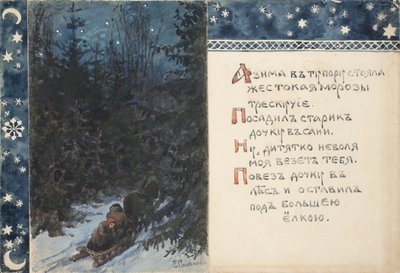 А зима въ ту пору стояла
жестокая, морозы
трескучіе.
Посадилъ старикъ
дочку въ сани.
Ну, дитятко неволя
моя везетъ тебя.
Повезъ дочку въ
лѣсъ и оставилъ
подъ большею
ёлкою.